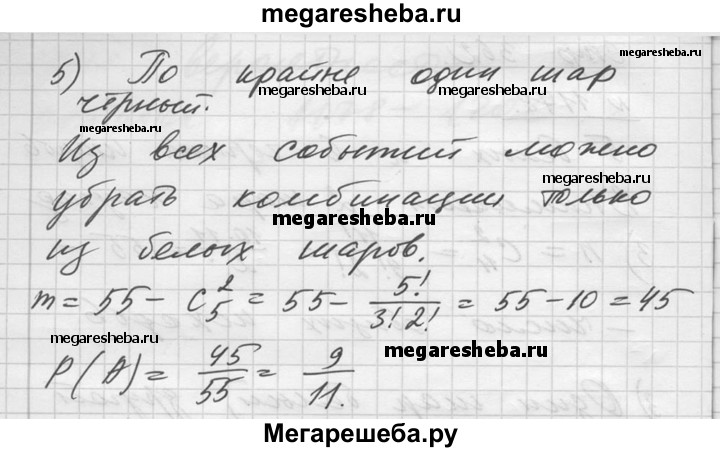 megaresheba.ru
megaresheba.ru
5) По крайне один шар
megaresheba.ru megaresheba.ru
чёрный.
megaresheba.ru
Из всех событий можно
megaresheba.ru
убрать комбинации только
megaresheba.ru
из белых шаров.
m = 55 - C₅² = 55 - 5!/(3! 2!) = 55 - 10 = 45
megaresheba.ru
megaresheba.ru
P(A) = 45/55 = 9/11.
Мегарешеба.ру